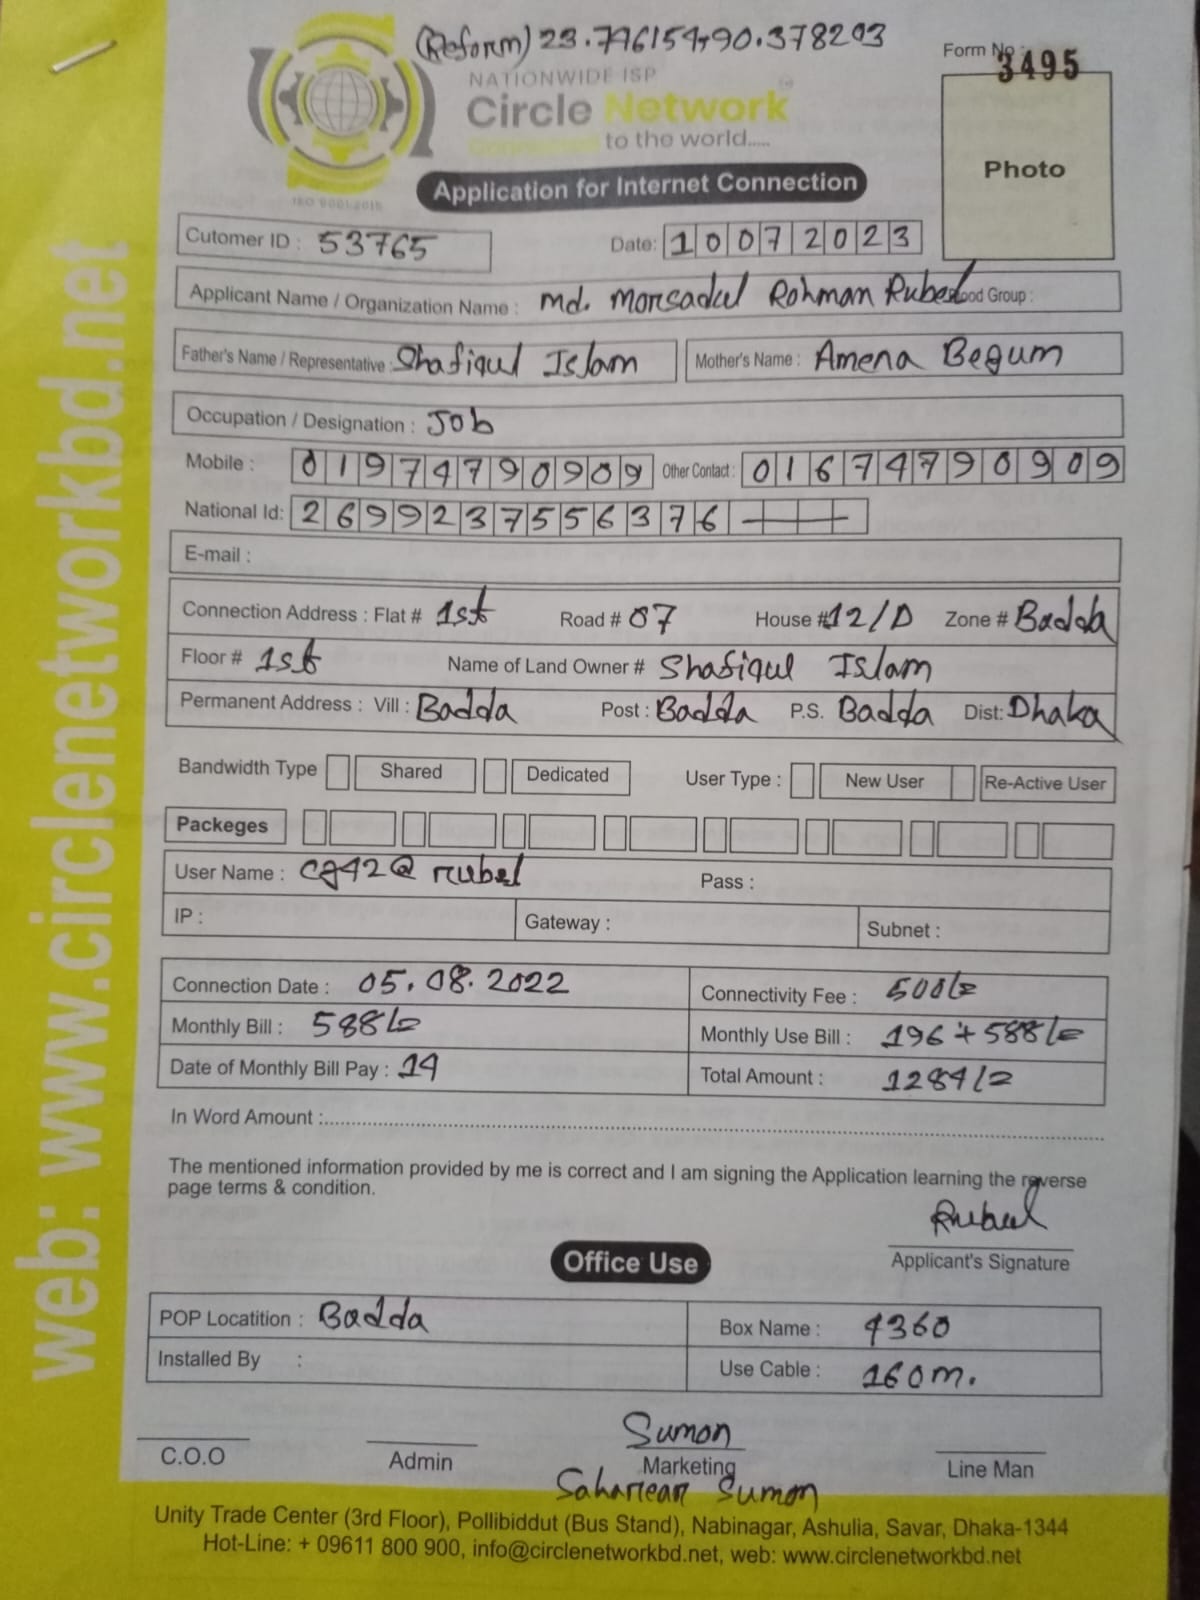 (Reform) 23.796154,90.378203
Form No : 3495
NATIONWIDE ISP
Circle Network
Connected to the world.....
ISO 9001:2015
Photo
Application for Internet Connection
Cutomer ID : 53765
Date: 10072023
Applicant Name / Organization Name : Md. Morsadul Rohman Rubel Blood Group :
Father's Name / Representative : Shafiqul Islam Mother's Name : Amena Begum
Occupation / Designation : Job
Mobile : 01974790909 Other Contact : 01674790909
National Id: 2699237556376
E-mail :
Connection Address : Flat # 1st Road # 07 House # 12/D Zone # Badda
Floor # 1st Name of Land Owner # Shafiqul Islam
Permanent Address : Vill : Badda Post : Badda P.S. Badda Dist: Dhaka
Bandwidth Type Shared Dedicated User Type : New User Re-Active User
Packeges
User Name : cg42@rubel Pass :
IP : Gateway : Subnet :
Connection Date : 05.08.2022 Connectivity Fee : 500/=
Monthly Bill : 588/= Monthly Use Bill : 196+588/=
Date of Monthly Bill Pay : 14 Total Amount : 1284/=
In Word Amount :
The mentioned information provided by me is correct and I am signing the Application learning the reverse
page terms & condition.
Rubel
Applicant's Signature
Office Use
POP Locatition : Badda Box Name : 4360
Installed By : Use Cable : 160m.
Sumon
C.O.O Admin Marketing Line Man
Sahariear Sumon
Unity Trade Center (3rd Floor), Pollibiddut (Bus Stand), Nabinagar, Ashulia, Savar, Dhaka-1344
Hot-Line: + 09611 800 900, info@circlenetworkbd.net, web: www.circlenetworkbd.net
web: www.circlenetworkbd.net